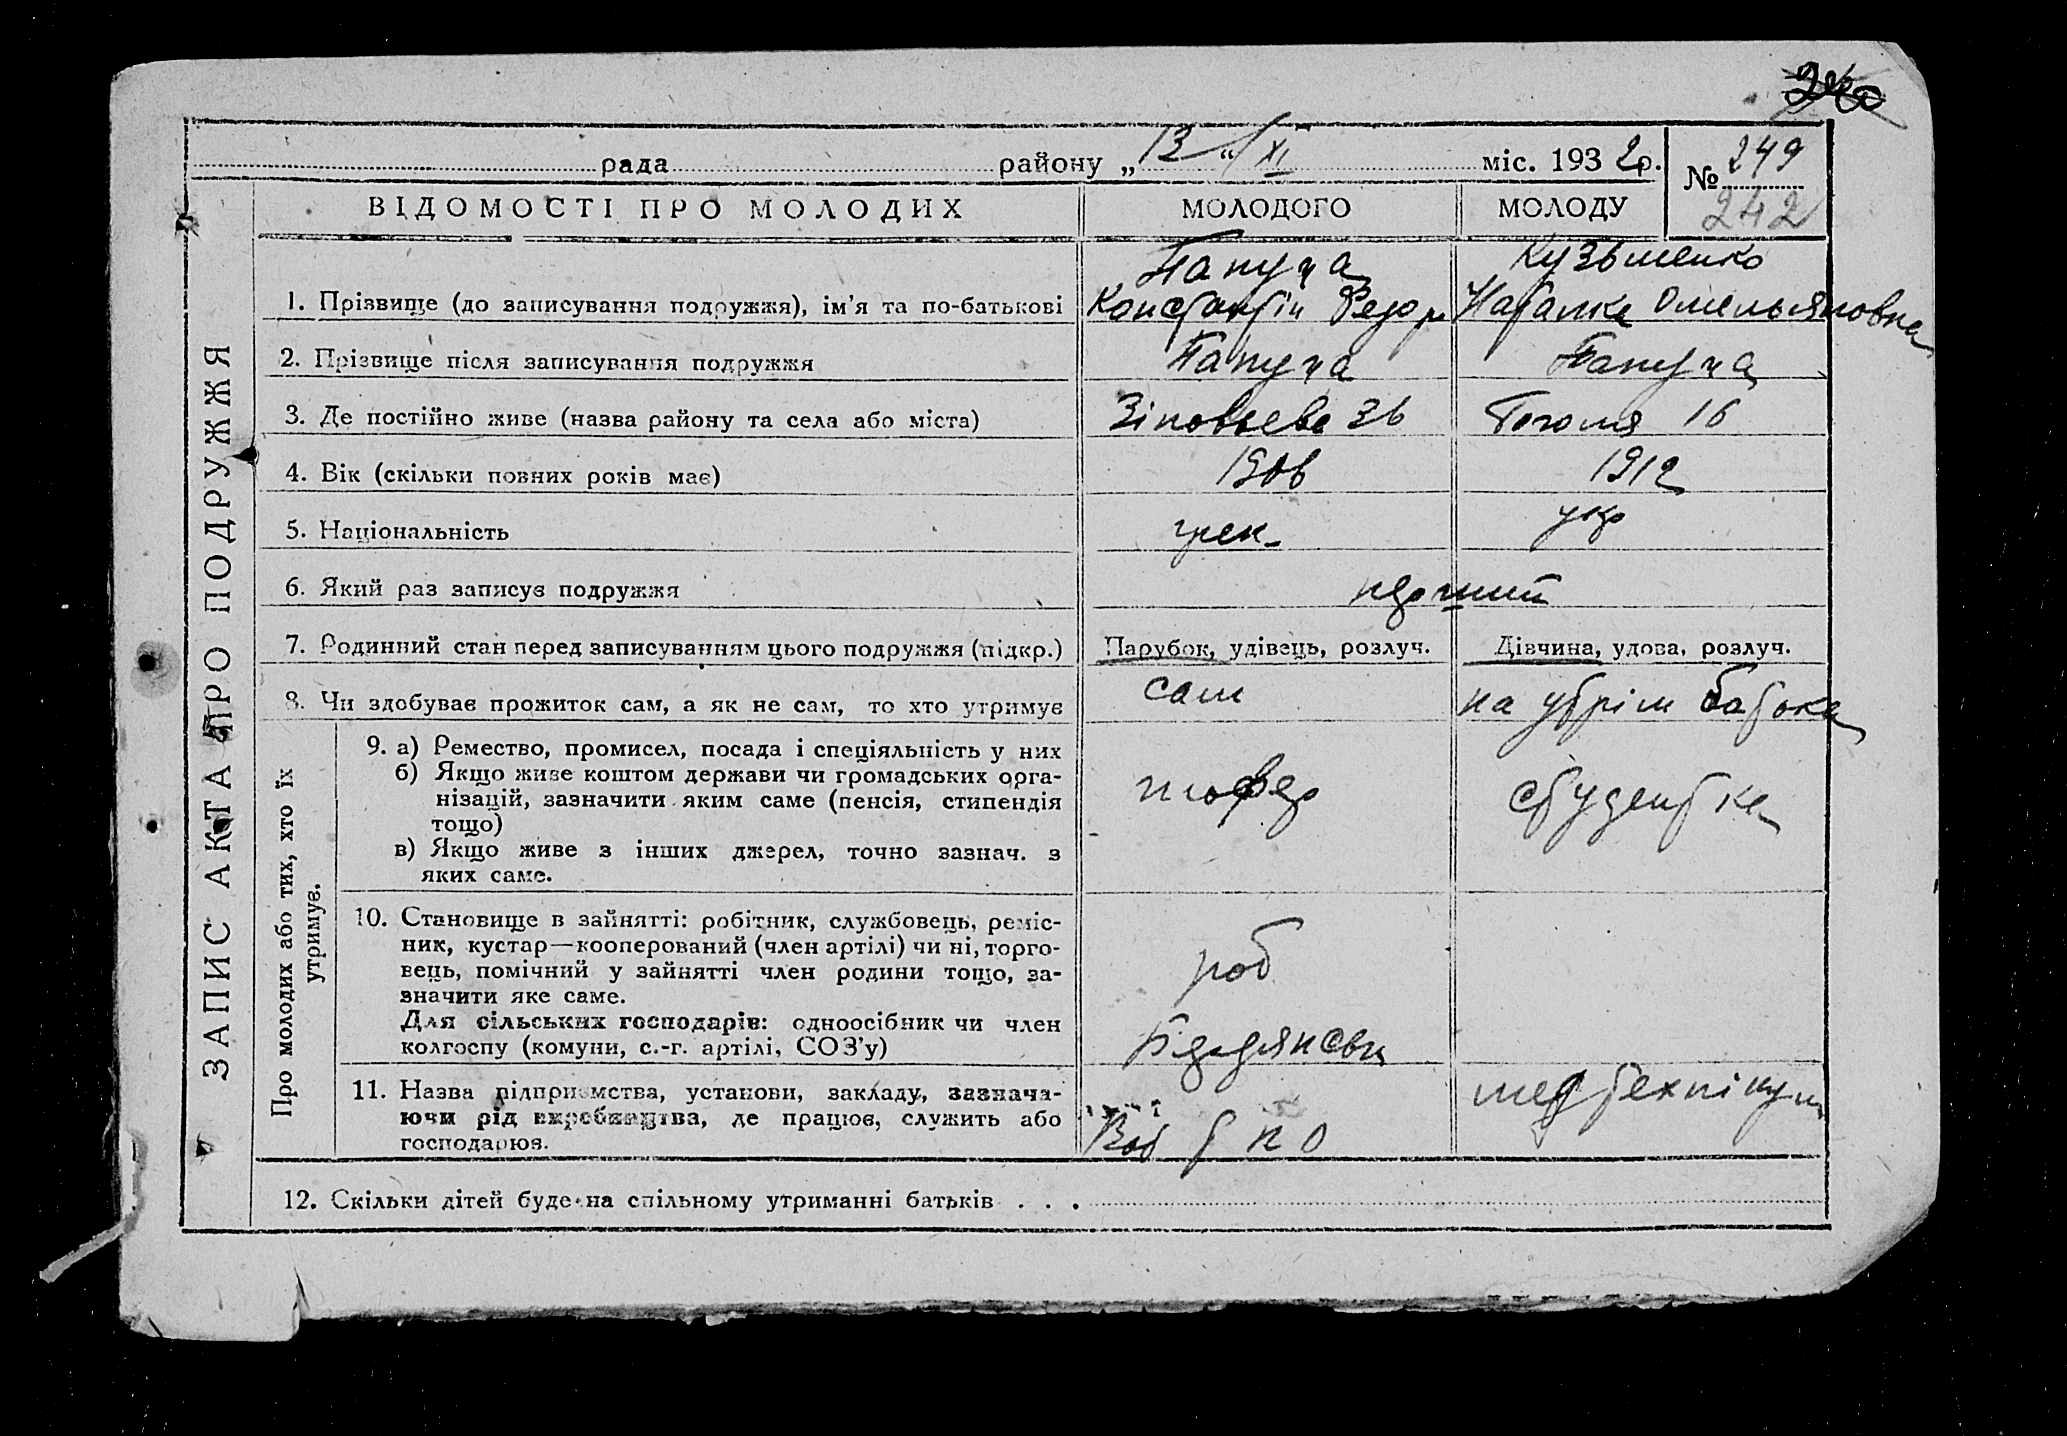 рада районy „ 13 “ XI міс. 1932р. № 249
242
ВІДОМОСТІ ПРО МОЛОДИХ МОЛОДОГО МОЛОДУ
Папуча Кузьменко
1. Прізвище (до записування подружжя), ім’я та по-батькові Константін Федор Наталка Омельяновна
2. Прізвище після записування подружжя Папуча Папуча
3. Де постійно живе (назва району та села або міста) Зіновьева 36 Гоголя 16
4. Вік (скільки повних років має) 1906 1912
5. Національність грек укр
6. Який раз записує подружжя перший
7. Родинний стан перед записуванням цього подружжя (підкр.) Парубок, удівець, розлуч. Дівчина, удова, розлуч.
8. Чи здобуває прожиток сам, а як не сам, то хто утримує сам на утрім батька
ЗАПИС АКТА ПРО ПОДРУЖЖЯ
Про молодих або тих, хто їх
утримує.
9. а) Ремество, промисел, посада і спеціяльність у них
б) Якщо живе коштом держави чи громадських орга-
нізацій, зазначити яким саме (пенсія, стипендія
тощо)
в) Якщо живе з інших джерел, точно зазнач. з
яких саме.
шофер студентка
10. Становище в зайнятті: робітник, службовець, реміс-
ник, кустар—кооперований (член артілі) чи ні, торго-
вець, помічний у зайнятті член родини тощо, за-
значити яке саме.
Для сільських господарів: одноосібник чи член
колгоспу (комуни, с.-г. артілі, СОЗ’у)
роб
11. Назва підприємства, установи, закладу, зазнача-
ючи рід виробництва, де працює, служить або
господарює.
Бердянськ
медтехнікум
12. Скільки дітей буде на спільному утриманні батьків . . .